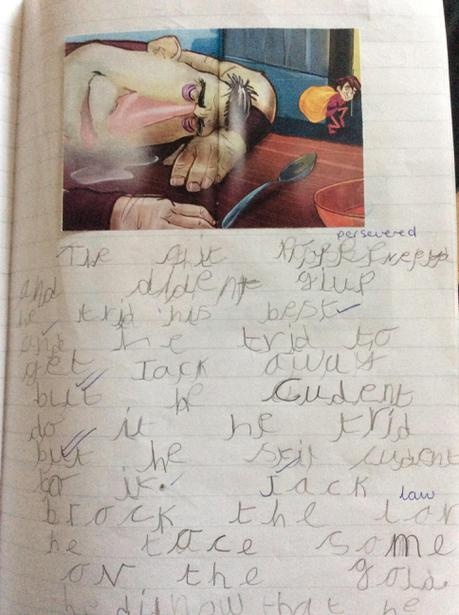 persevered
The
and dident giup
he trid his best
and he trid to
get Jack away
but he Cudent
do it he trid
but he skil cudent
do it. Jack
law
brock the lor
he toce some
on the gold
he did now that he